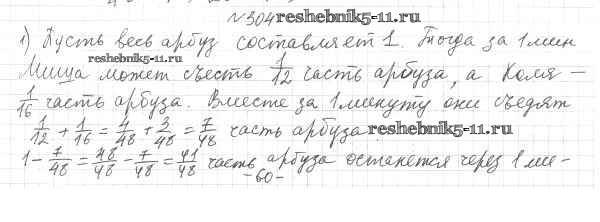 №304 reshebnik5-11.ru
1) Пусть весь арбуз составляет 1. Тогда за 1 мин
reshebnik5-11.ru
Миша может съесть 1/12 часть арбуза, а Коля –
1/16 часть арбуза. Вместе за 1 минуту они съедят
1/12 + 1/16 = 4/48 + 3/48 = 7/48 часть арбуза reshebnik5-11.ru
1 - 7/48 = 48/48 - 7/48 = 41/48 часть арбуза останется через 1 ми-
-60-